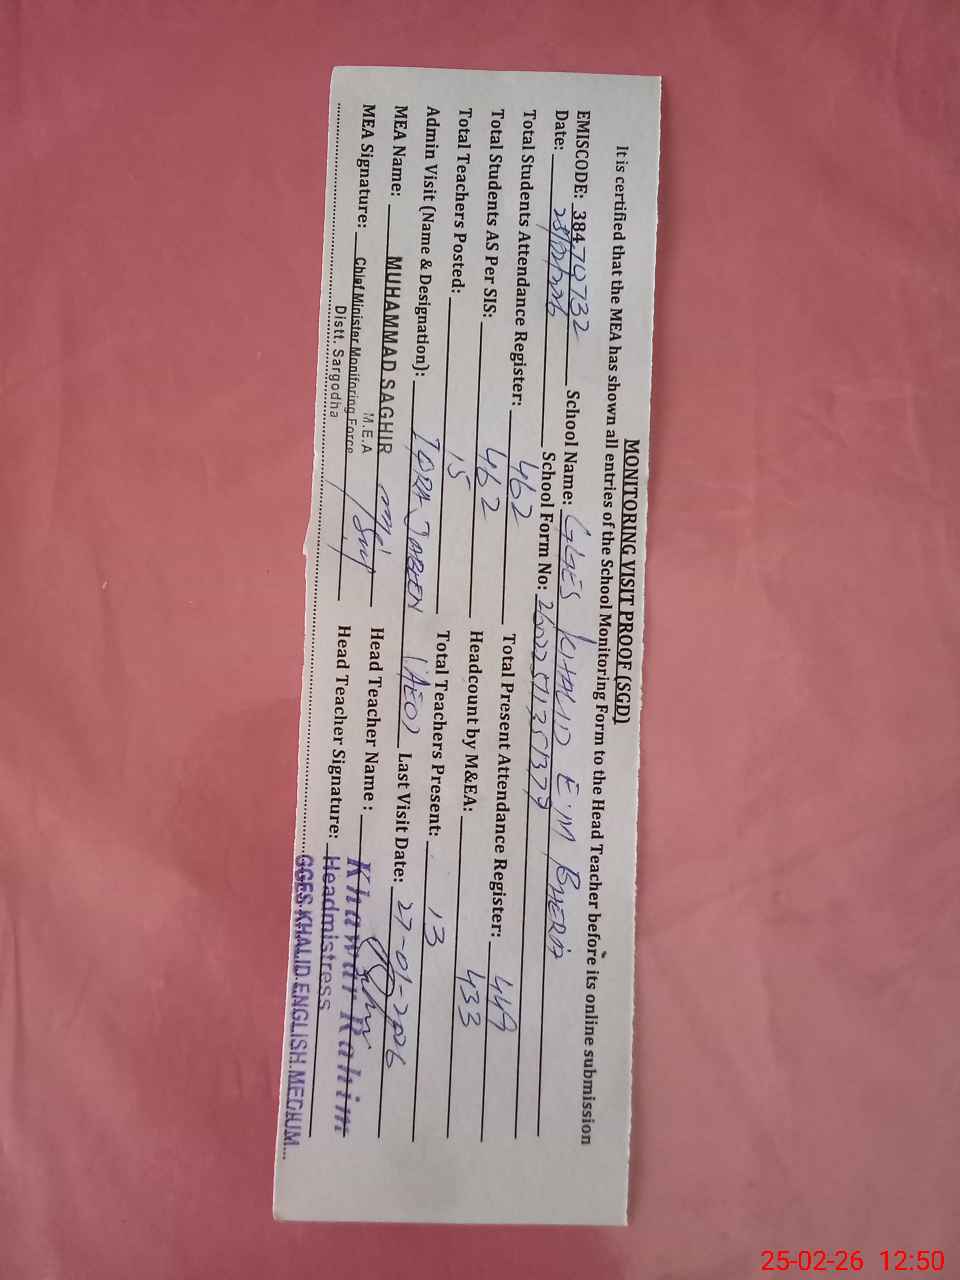 MONITORING VISIT PROOF (SGD)
It is certified that the MEA has shown all entries of the School Monitoring Form to the Head Teacher before its online submission
EMISCODE: 384 School Name: GGES KHALID E/M BHERA
Date: 25/02/2026 School Form No:
Total Students Attendance Register: 462 Total Present Attendance Register: 449
Total Students AS Per SIS: 462 Headcount by M&EA: 433
Total Teachers Posted: 15 Total Teachers Present: 13
Admin Visit (Name & Designation): JABEEN (AEO) Last Visit Date: 27-01-2026
MEA Name: MUHAMMAD SAGHIR Head Teacher Name : Khawar Rahim
M.E.A
MEA Signature: Chief Minister Monitoring Force Head Teacher Signature: Headmistress
Distt. Sargodha
GGES.KHALID.ENGLISH.MEDIUM
25-02-26 12:50